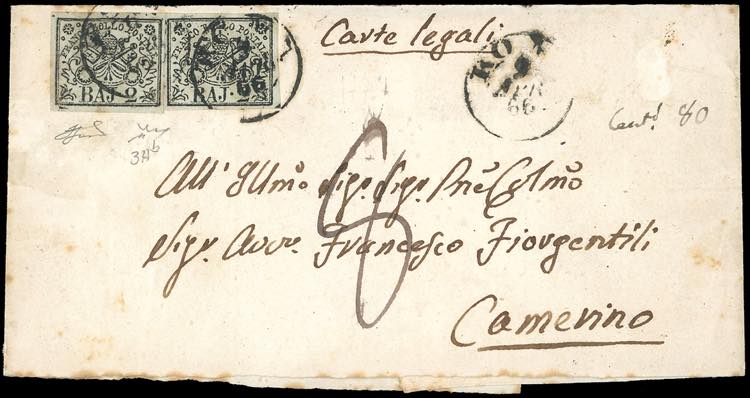 FRANCO BOLLO POSTALE FRANCO BOLLO POSTALE
BAJ. 2 BAJ. 2
66
Carte legali
ROMA
9
APR
66
Cent. 80
8
All' Illmo Sigr. Sigr. Pne Colmo
Sigr. Avvo. Francesco Fiorgentili
Camerino